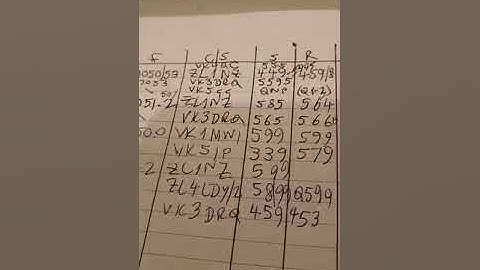 F C/S S R
VK4QC 555
7050/53 ZL1NZ 449 459/3
7053 VK3DRQ 5595
VK5 QNP (Q+2)
7051-2 ZL1NZ 585 564
VK3DRQ 565 566
50.0 VK1MWI 599 599
VK5IP 339 579
-2 ZL1NZ 599
ZL4LDY/2 589 599
VK3DRQ 459 453